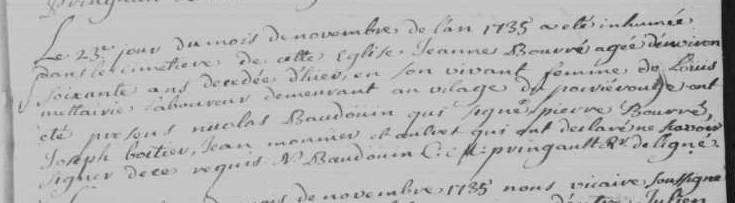 Le 23e jour du mois de novembre de l'an 1735 a eté inhumée
dans le cimetiere de cette Eglise Jeanne Bourré agée d'environ
soixante ans decedée d'hier, en son vivant femme de Louis
mettairie laboureur demeurant au vilage du ont
été presens nicolas Baudouin qui signe, pierre Bourré,
Joseph boitier, Jean monnier et autres qui ont declaré ne scavoir
signer de ce requis N Baudouin pringault de ligné
de novembre 1735 nous vicaire soussigné
Julien